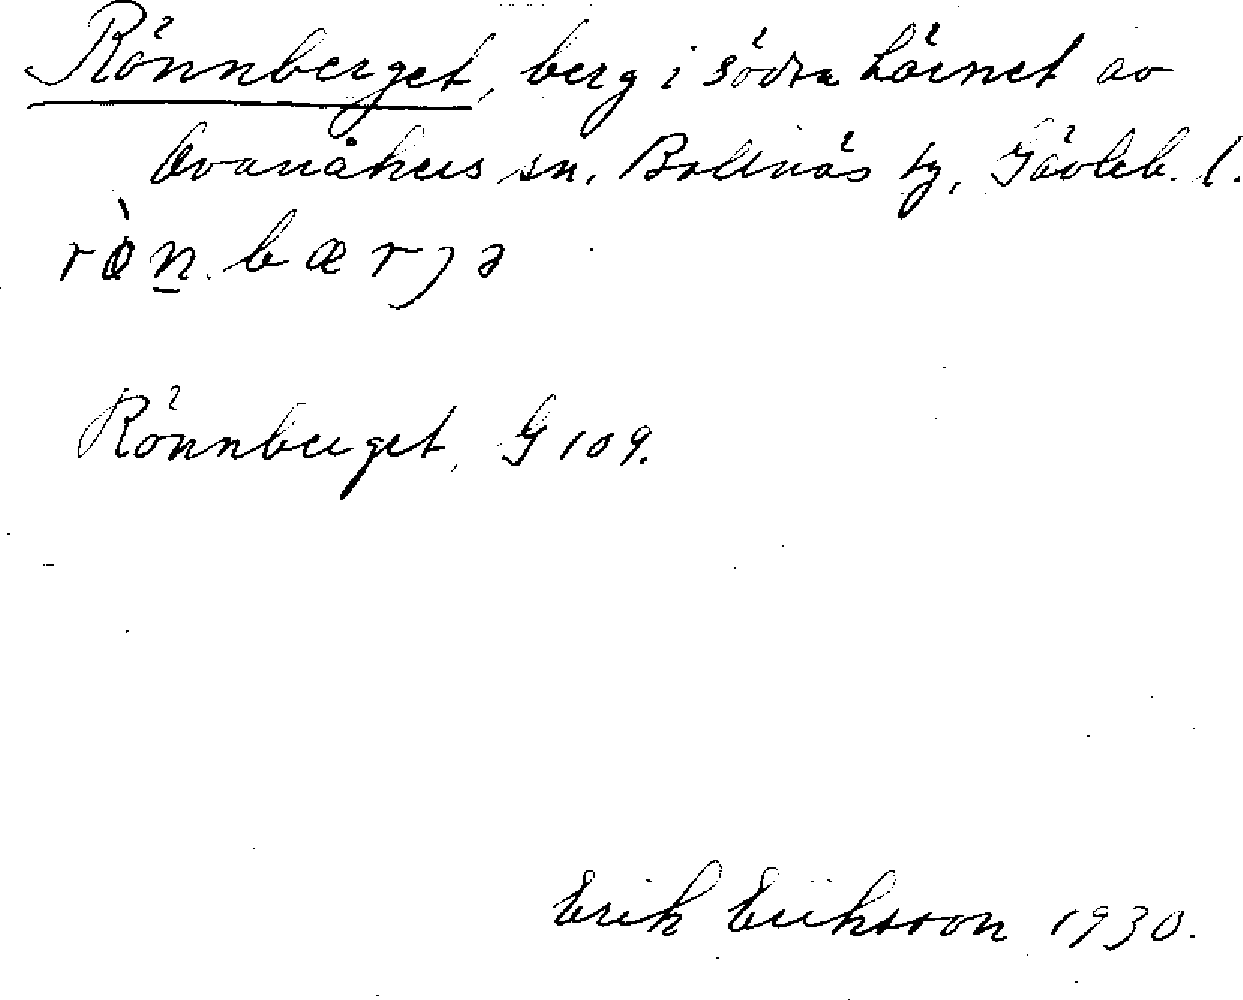 Rönnberget, berg i södra hörnet av
Ovanåkers sn. Bollnäs tg, Gävleb. l.
rò̱n. bærjə
Rönnberget, G 109.
Erik Eriksson 1930.